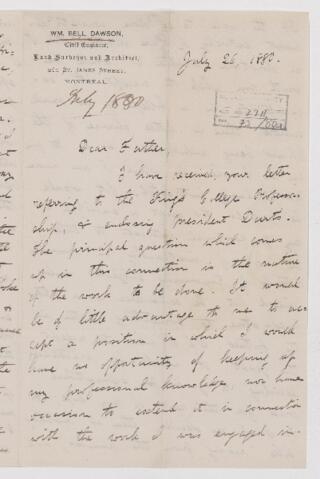 WM. BELL DAWSON,
Civil Engineer,
Land Surveyor and Architect,
ST. JAMES STREET,
MONTREAL.
July 26, 1880.
July 1880
Dear Father,
I have received your letter
referring to the King's College Professor-
ship, & enclosing president Dart's.
The principal question which comes
up in this connection is the nature
of the work to be done. It would
be of little advantage to me to acc-
ept a position in which I would
have no opportunity of keeping up
my professional knowledge, nor have
occasion to extend it in connection
with the work I was engaged in.